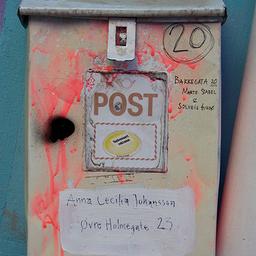 20
BAKKEGATA 20
MARTE
&
SOLVEIG
POST
Anna Cecilia Johansson
Øvre Holmegate 25